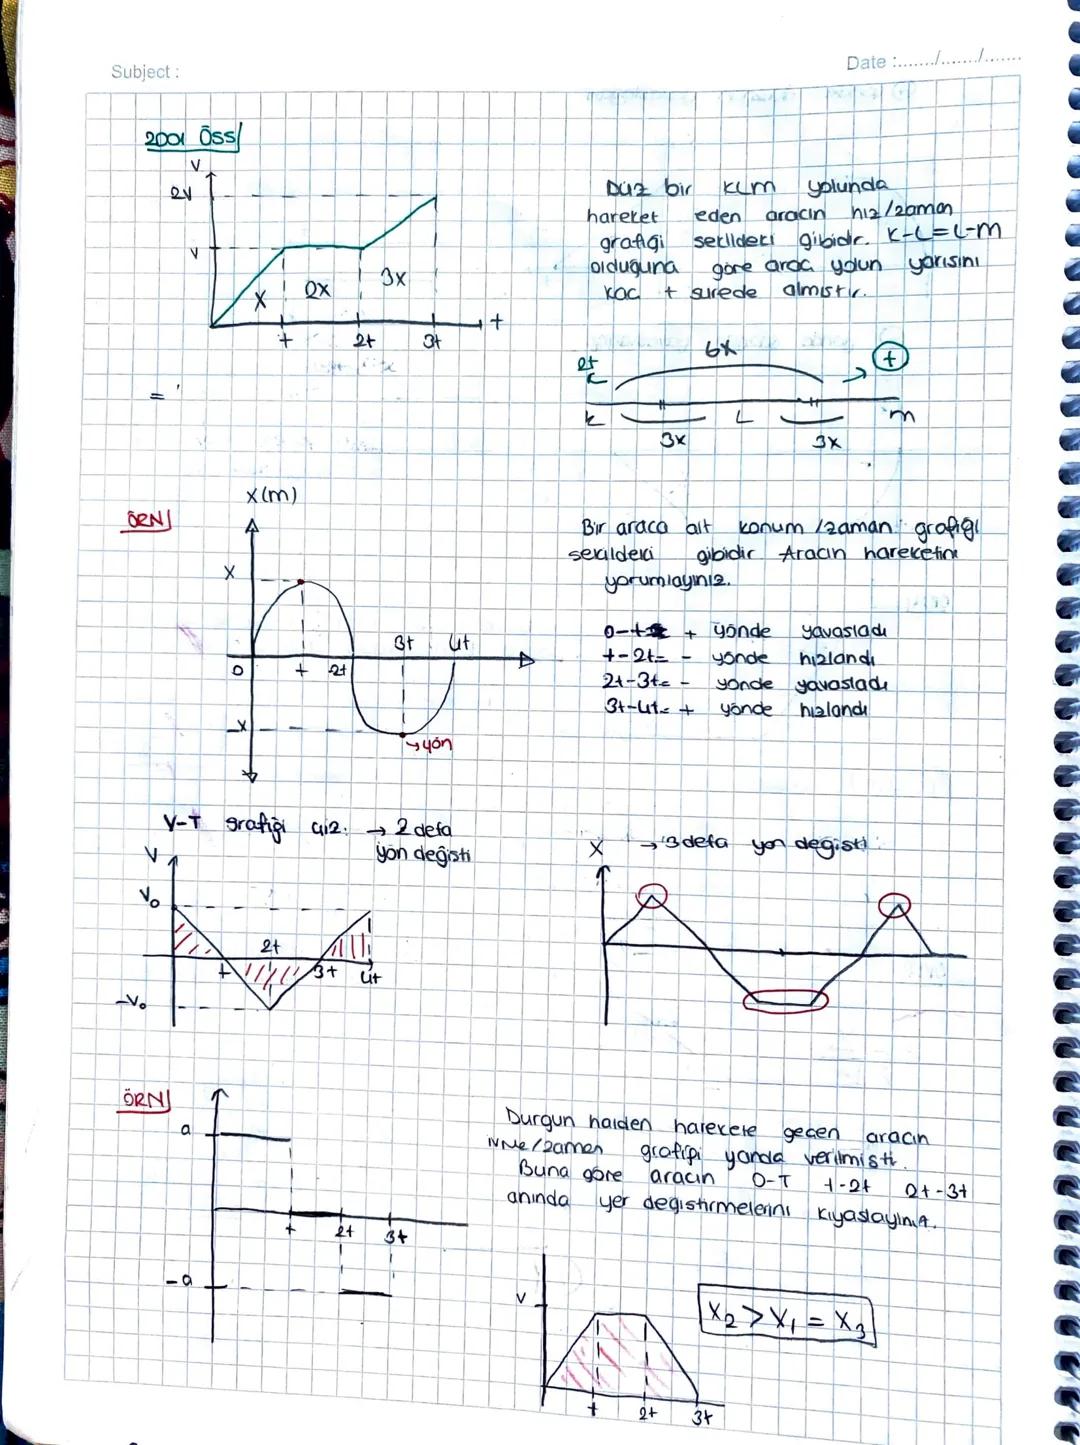 Subject :
Date :......../......../........
2001 ÖSS
V
2V
V
X
2X
3X
t
2t
3t
t
=
Düz bir KLM yolunda
hareket eden aracın hız/zaman
grafiği şekildeki gibidir. K-L=L-M
olduğuna göre araç yolun yarısını
kaç t sürede almıştır.
2t
6X
+
K
L
M
3X
3X
ÖRN
X(m)
X
0
t
2t
3t
4t
-X
→yön
Bir araca ait konum/zaman grafiği
şekildeki gibidir Aracın hareketini
yorumlayınız.
0-t= + yönde yavaşladı
t-2t= - yönde hızlandı
2t-3t= - yönde yavaşladı
3t-4t= + yönde hızlandı
V-T grafiği çiz. → 2 defa
yön değişti
V
V₀
2t
t
3t
4t
-V₀
X → 3 defa yön değişti
ÖRN
a
t
2t
3t
-a
Durgun halden harekete geçen aracın
ivme/zaman grafiği yanda verilmişti.
Buna göre aracın 0-T t-2t 2t-3t
anında yer değiştirmelerini kıyaslayınız.
V
t
2t
3t
X₂ > X₁ = X₃